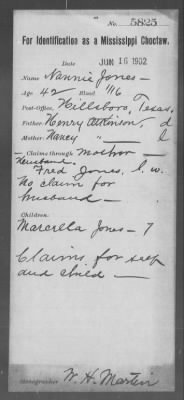 No. 5825
For Identification as a Mississippi Choctaw.
Date JUN 16 1902
Name Nannie Jones-
Age 42 Blood 1/16
Post-Office, Hillsboro, Texas,
Father: Henry Atkinson, d
Mother: Nancy " - l
Claims through mother -
Husband:
Fred Jones, I. w.
No claim for
husband -
Children:
Marcella Jones - 7
Claims for self
and child -
Stenographer W. H. Martin